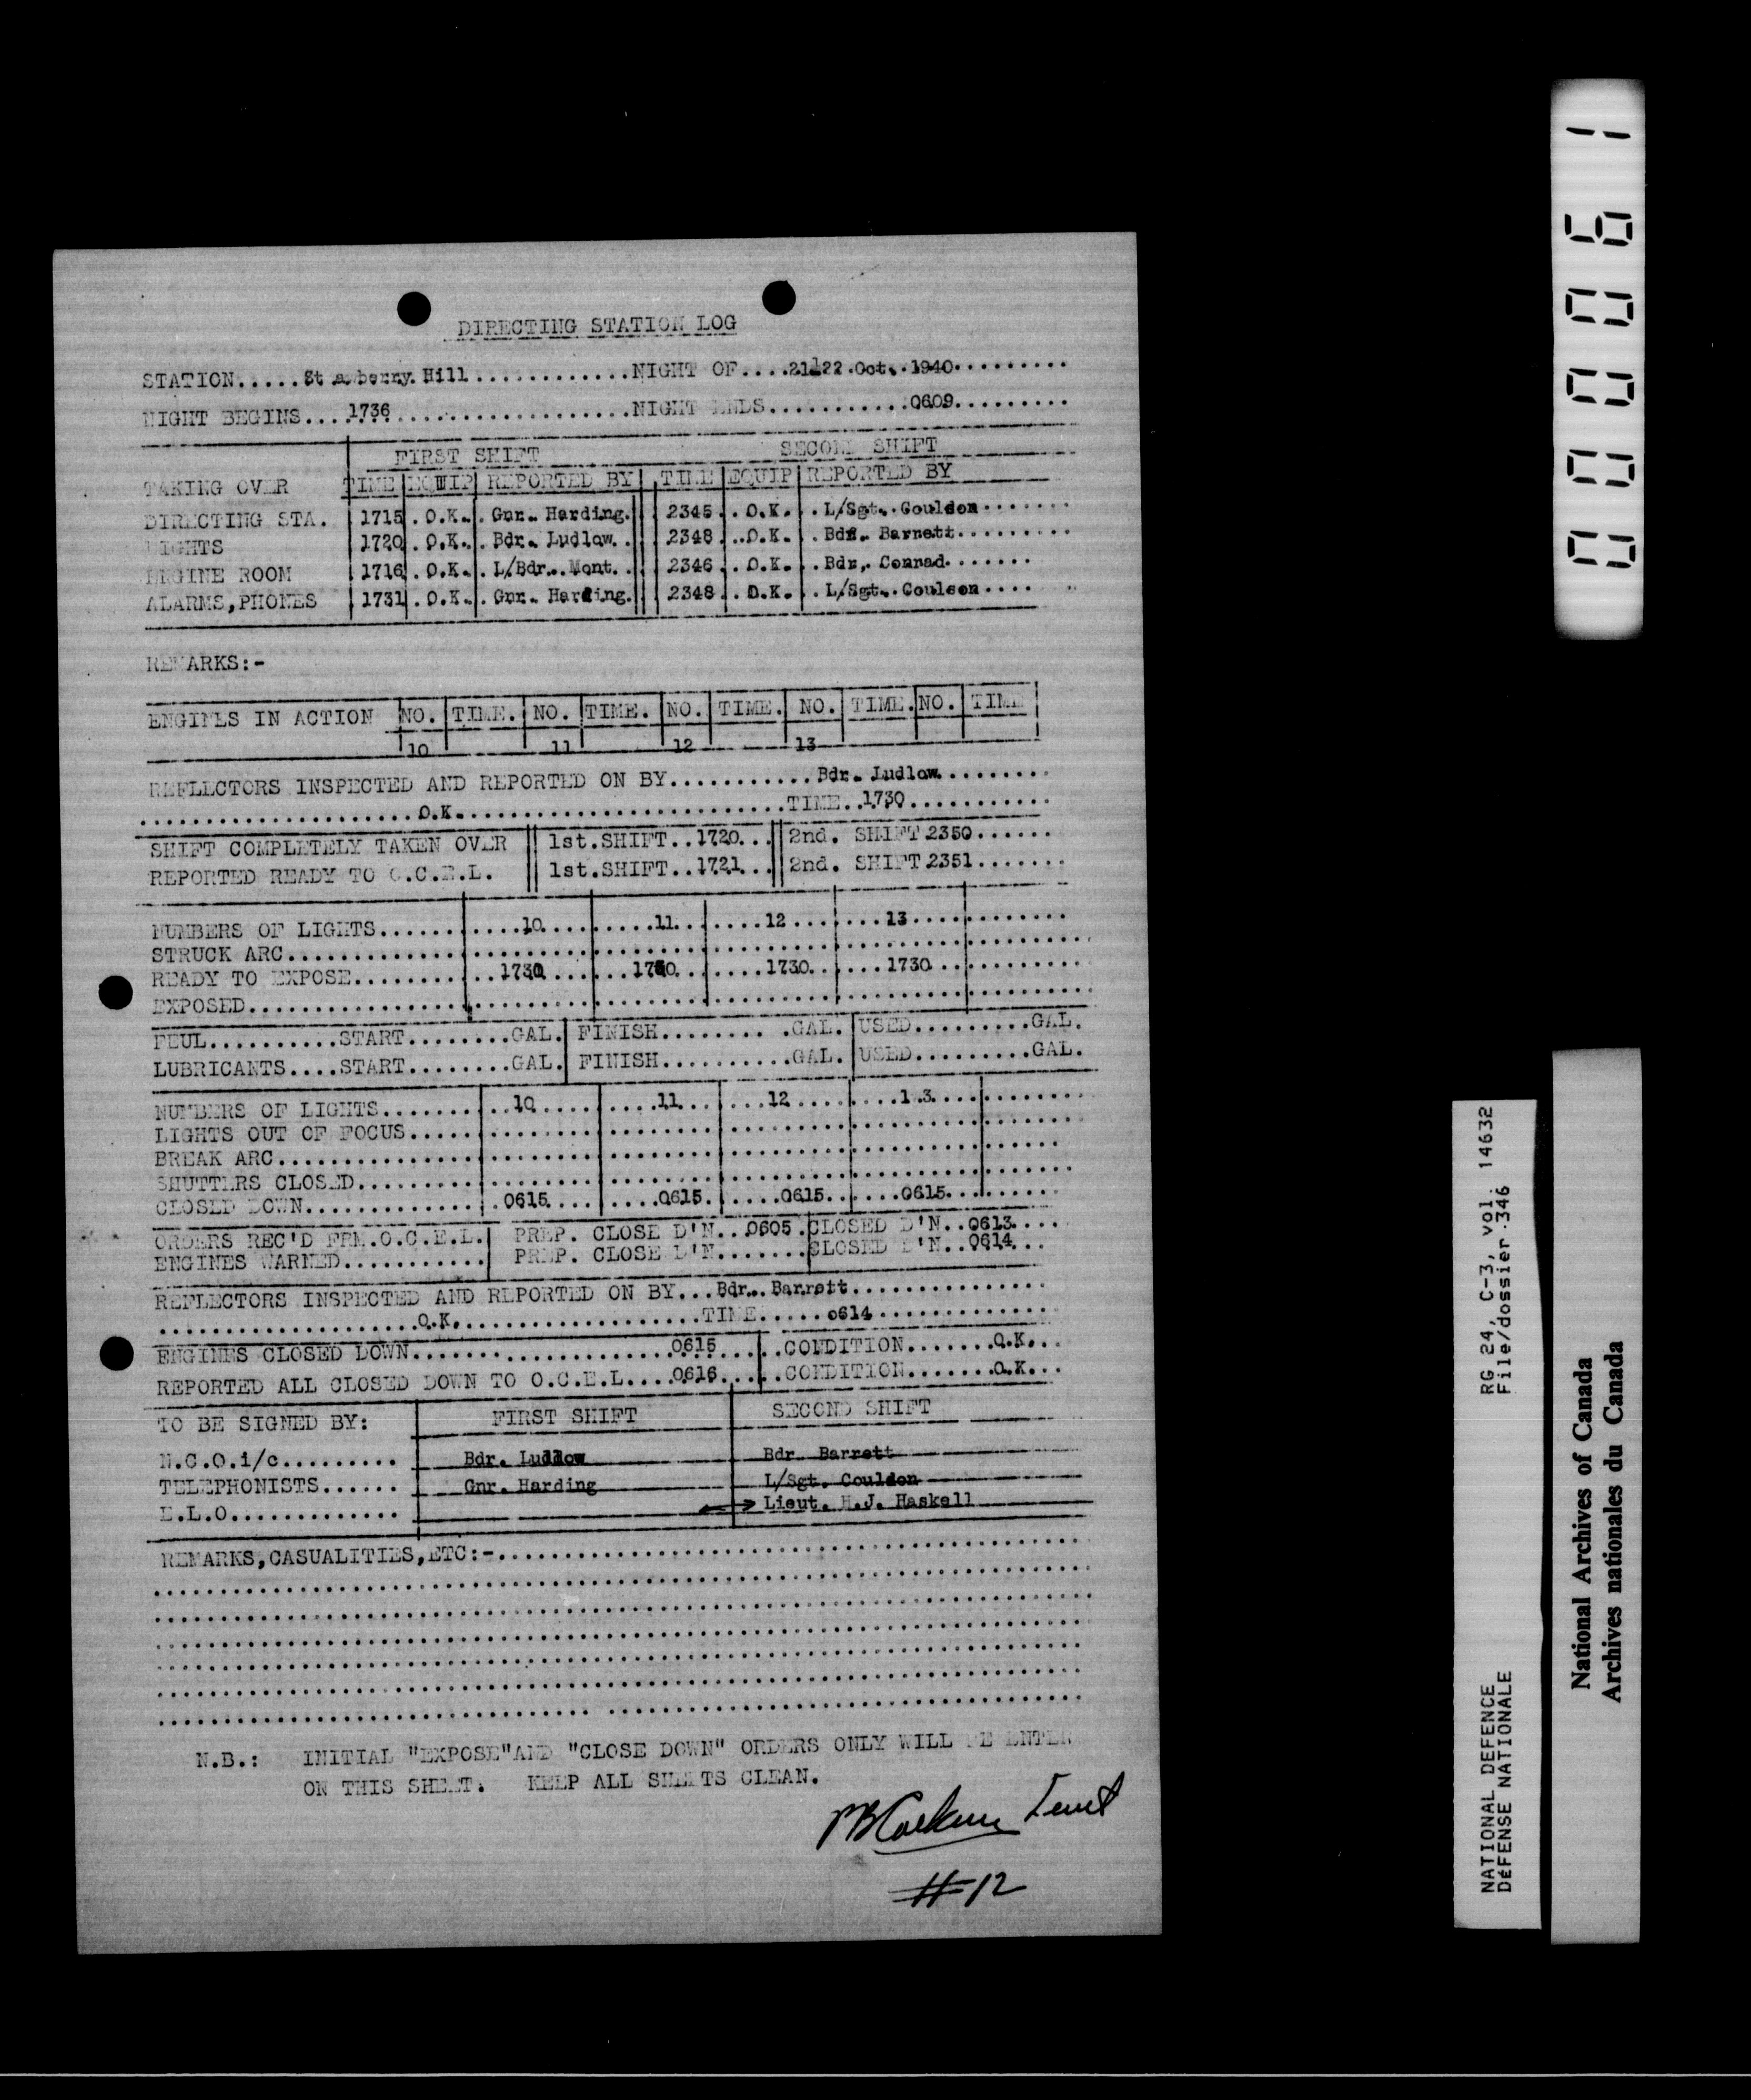 DIRECTING STATION LOG
STATION.....St a berry Hill............NIGHT OF....21-22 Oct. 1940.........
NIGHT BEGINS...1736......................NIGHT ENDS...........0609.........
FIRST SHIFT SECOND SHIFT
TAKING OVER TIME EQUIP REPORTED BY TIME EQUIP REPORTED BY
DIRECTING STA. 1715 O.K. Gnr. Harding. 2345 O.K. L/Sgt. Couldon
LIGHTS 1720 O.K. Bdr. Ludlow. 2348 O.K. Bdr. Barnett
ENGINE ROOM 1716 O.K. L/Bdr. Mont. 2346 O.K. Bdr. Connad
ALARMS,PHONES 1731 O.K. Gnr. Harding. 2348 O.K. L/Sgt. Coulson
REMARKS:-
ENGINES IN ACTION NO. TIME. NO. TIME. NO. TIME. NO. TIME. NO. TIME
10 11 12 13
REFLECTORS INSPECTED AND REPORTED ON BY...........Bdr. Ludlow.........
O.K..........................TIME..1730...........
SHIFT COMPLETELY TAKEN OVER 1st.SHIFT..1720... 2nd. SHIFT 2350......
REPORTED READY TO O.C.E.L. 1st.SHIFT..1721... 2nd. SHIFT 2351.......
NUMBERS OF LIGHTS....... 10 11 12 13
STRUCK ARC
READY TO EXPOSE......... 1730 1730 1730 1730
EXPOSED
FEUL..........START........GAL. FINISH........ .GAL. USED.........GAL.
LUBRICANTS....START........GAL. FINISH..........GAL. USED.........GAL.
NUMBERS OF LIGHTS........ 10 11 12 1 3
LIGHTS OUT OF FOCUS......
BREAK ARC
SHUTTERS CLOSED
CLOSED DOWN............. 0615 0615 0615 0615
ORDERS REC'D FRM.O.C.E.L. PREP. CLOSE D'N..0605 CLOSED D'N..0613....
ENGINES WARNED........... PREP. CLOSE D'N....... CLOSED D'N..0614...
REFLECTORS INSPECTED AND REPORTED ON BY...Bdr.. Barrett...............
O.K...................TIME.....0614..............
ENGINES CLOSED DOWN.......0615..... CONDITION.......O.K...
REPORTED ALL CLOSED DOWN TO O.C.E.L....0616.... CONDITION.......O.K...
TO BE SIGNED BY: FIRST SHIFT SECOND SHIFT
N.C.O.i/c......... Bdr. Ludlow Bdr. Barrett
TELEPHONISTS...... Gnr. Harding L/Sgt. Couldon
E.L.O............. Lieut. H.J. Haskell
REMARKS,CASUALITIES,ETC:-
N.B.: INITIAL "EXPOSE"AND "CLOSE DOWN" ORDERS ONLY WILL BE ENTER
ON THIS SHEET. KEEP ALL SHEETS CLEAN.
#12
000061
RG 24, C-3, vol. 14632
File/dossier 346
NATIONAL DEFENCE
DéFENSE NATIONALE
National Archives of Canada
Archives nationales du Canada